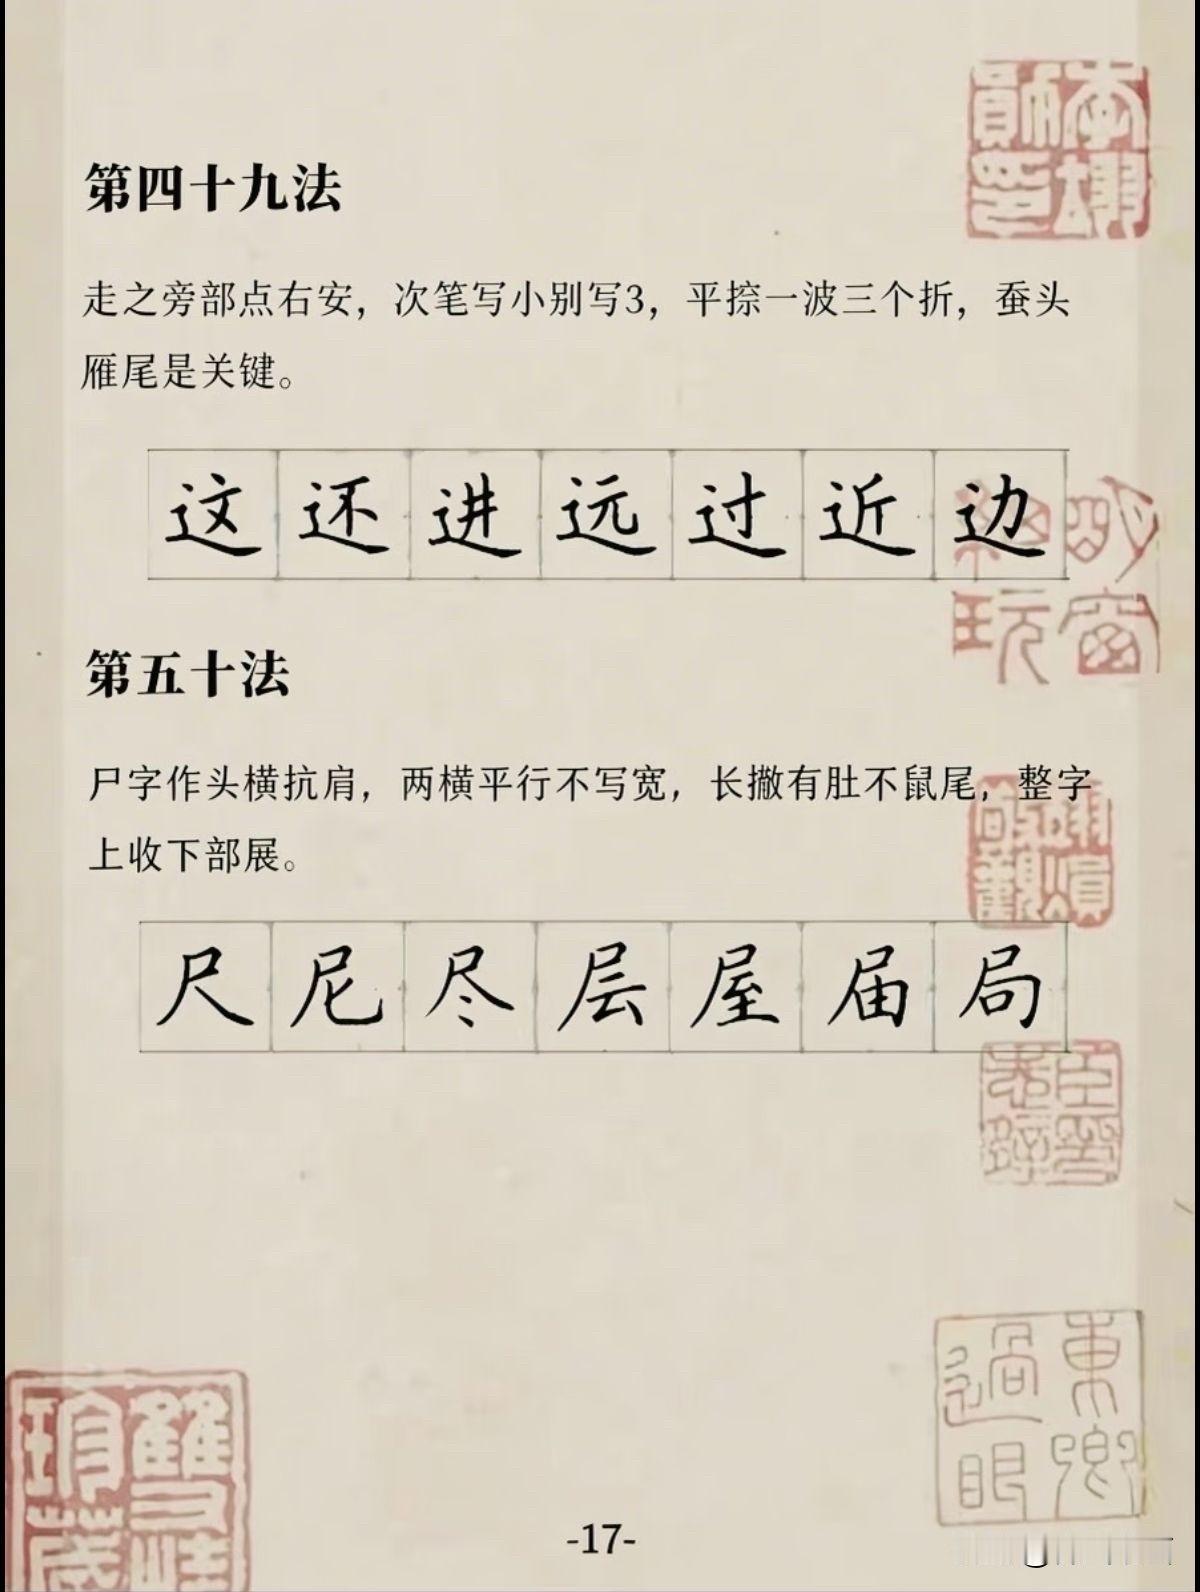 第四十九法
走之旁部点右安，次笔写小别写3，平捺一波三个折，蚕头
雁尾是关键。
这还进远过近边
第五十法
尸字作头横抗肩，两横平行不写宽，长撇有肚不鼠尾，整字
上收下部展。
尺尼尽层屋届局
東卿
過眼
-17-